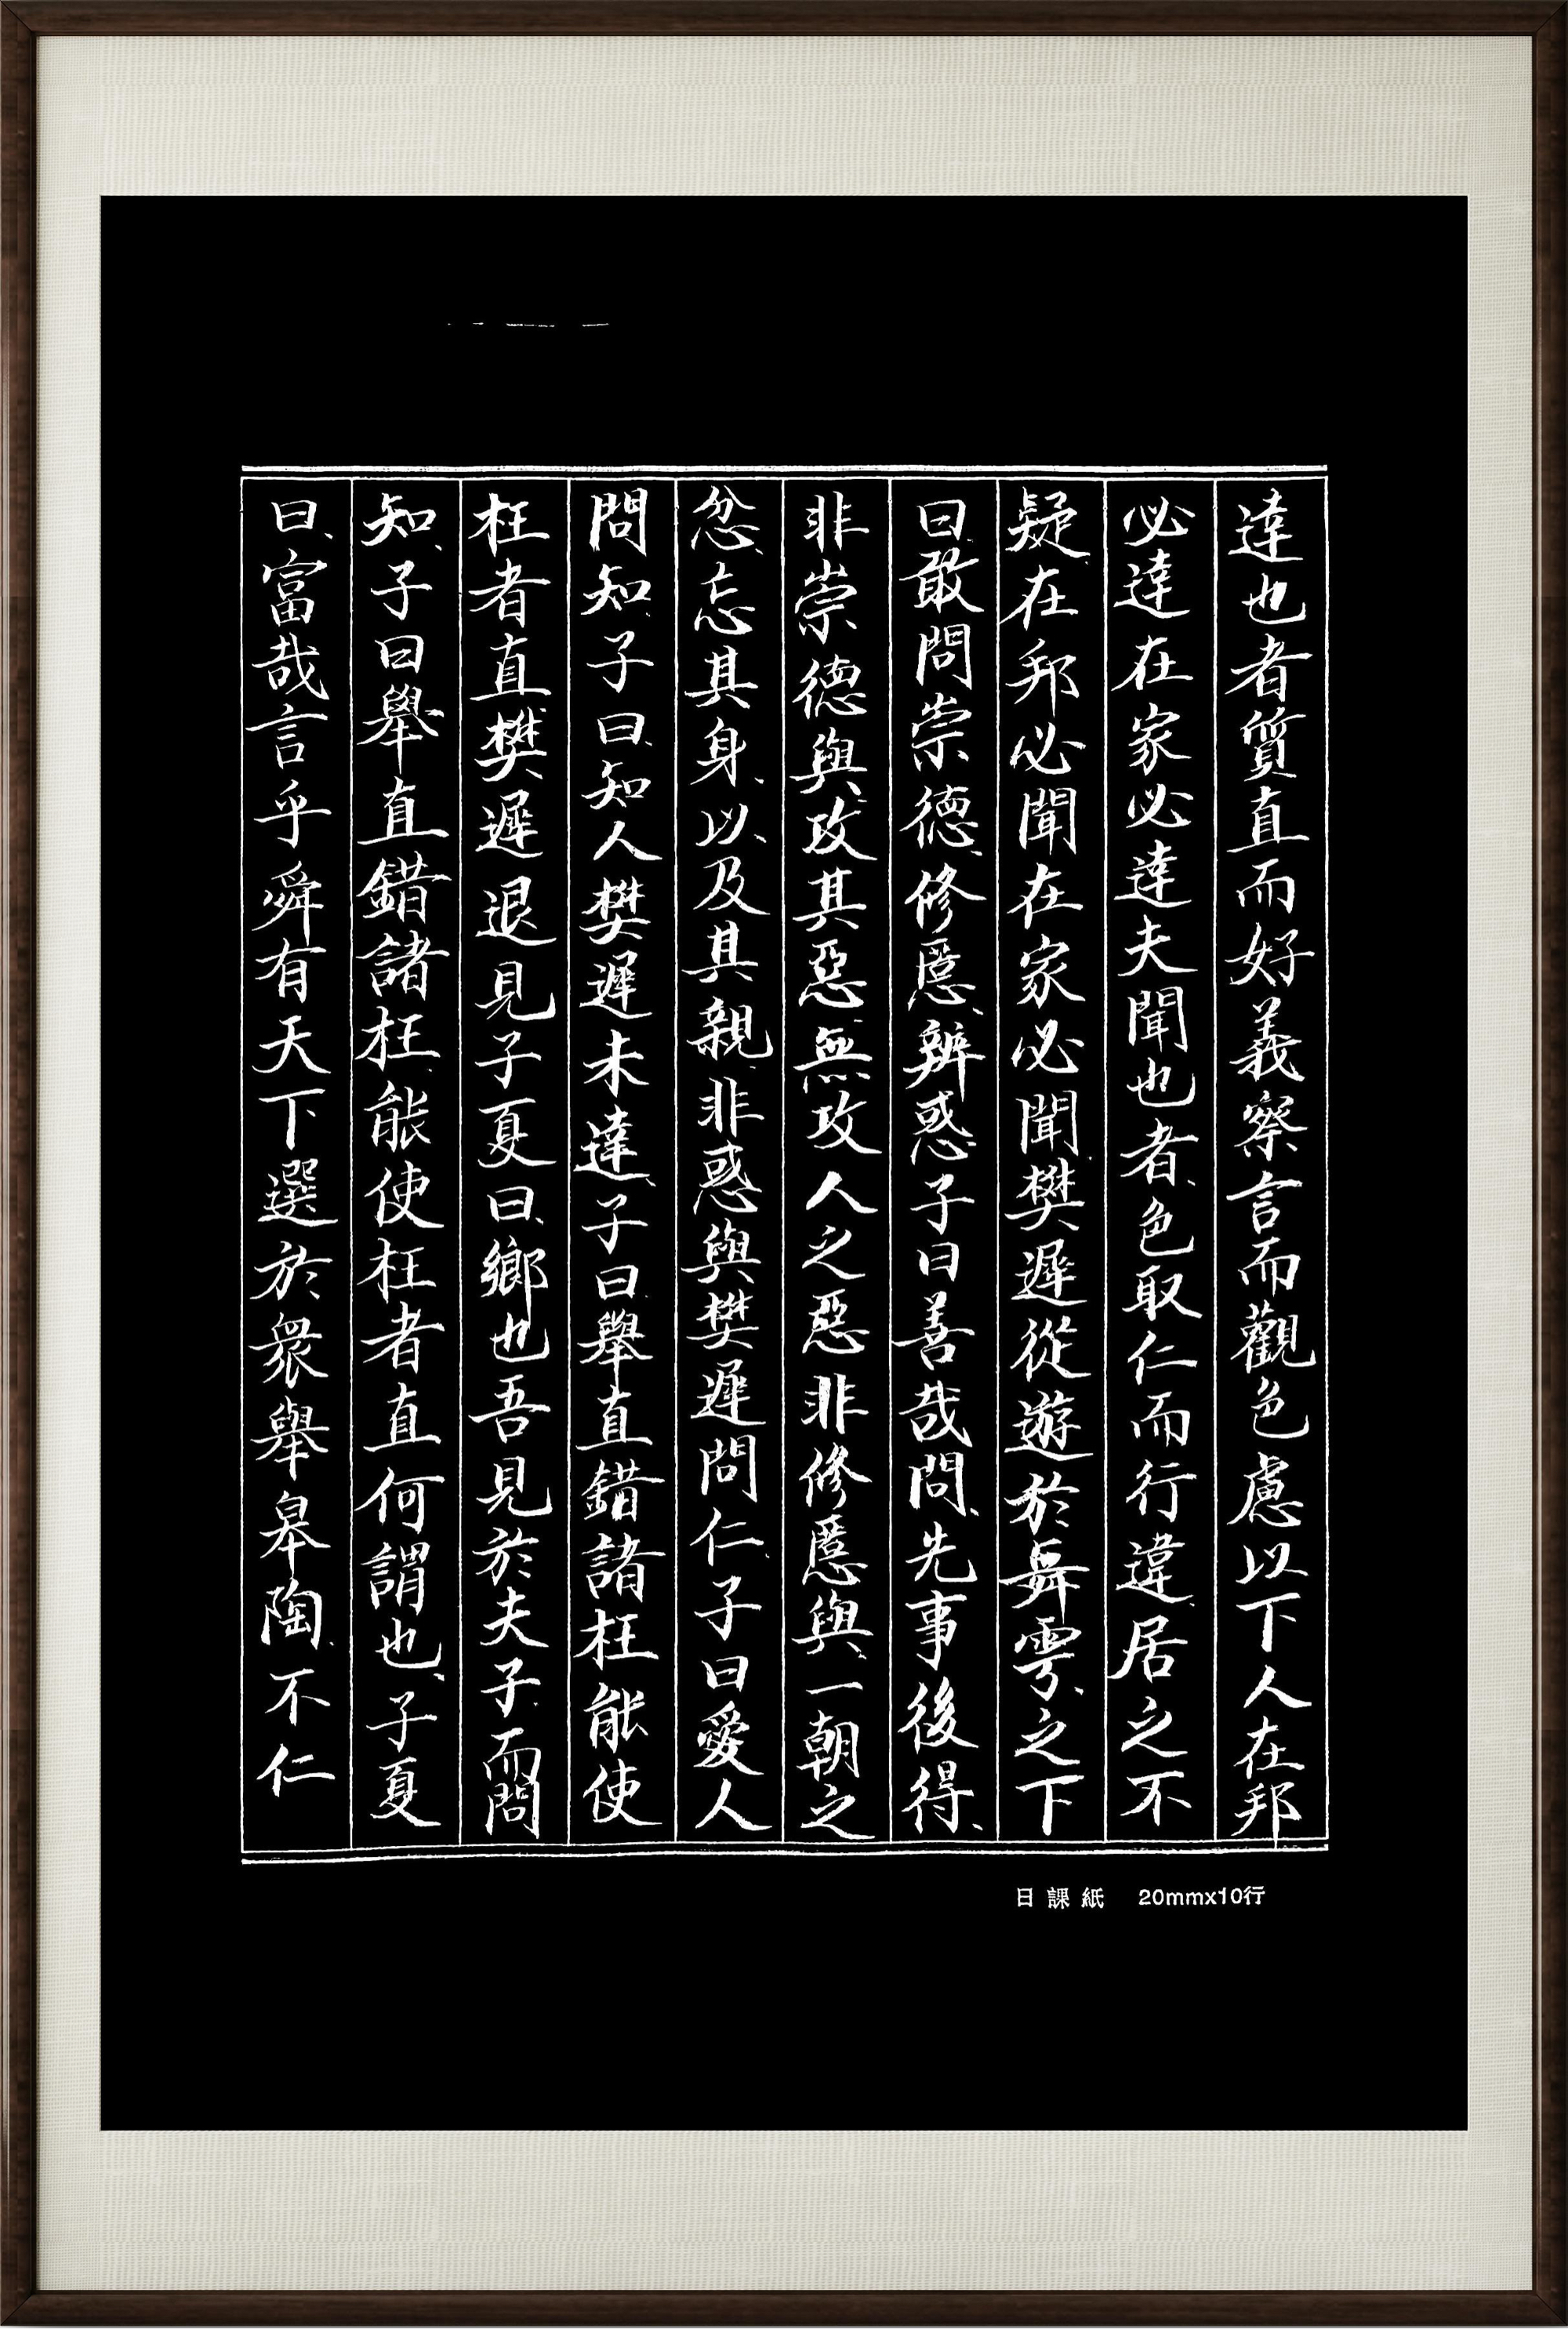 達也者質直而好義察言而觀色慮以下人在邦
必達在家必達夫聞也者色取仁而行違居之不
疑在邦必聞在家必聞樊遲從遊於舞雩之下
曰敢問崇德修慝辨惑子曰善哉問先事後得
非崇德與攻其惡無攻人之惡非修慝與一朝之
忿忘其身以及其親非惑與樊遲問仁子曰愛人
問知子曰知人樊遲未達子曰舉直錯諸枉能使
枉者直樊遲退見子夏曰鄉也吾見於夫子而問
知子曰舉直錯諸枉能使枉者直何謂也子夏
曰富哉言乎舜有天下選於眾舉皋陶不仁
日課紙 20mmx10行